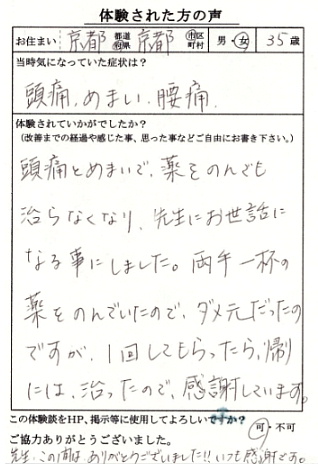 体験された方の声
お住まい 京都 都道府県 京都 市区町村 男・女 35歳
当時気になっていた症状は？
頭痛、めまい、腰痛
体験されていかがでしたか？
（改善までの経過や感じた事、思った事などご自由にお書き下さい。）
頭痛とめまいで、薬をのんでも
治らなくなり、先生にお世話に
なる事にしました。両手一杯の
薬をのんでいたので、ダメ元だったの
ですが、1回してもらったら、帰り
には、治ったので、感謝しています。
この体験談をHP、掲示等に使用してよろしいですか？
可・不可
ご協力ありがとうございました。
先生、この間は、ありがとうございました!!いつも感謝です。